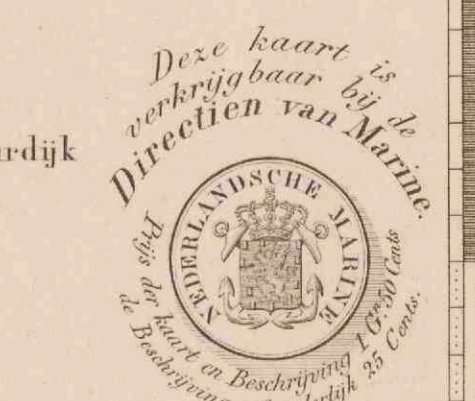 Deze kaart is
verkrijgbaar bij de
Directien van Marine.
rdijk
NEDERLANDSCHE MARINE
Prijs der kaart en Beschrijving 1 Gr. 50 Cents
de Beschrijving 25 Cents.